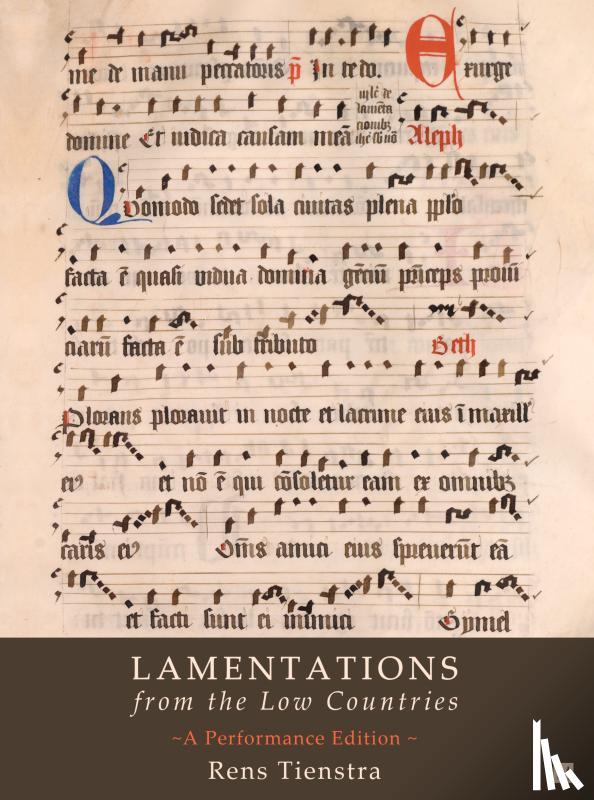 me de manu peccatoris p̄ In te do. Exurge
domine Et iudica causam meā Aleph
Quomodo sedet sola ciuitas plena pplo
facta ē quasi vidua domina gēciū prīceps prouī
ciarū facta ē sub tributo Beth
Plorans plorauit in nocte et lacrime eius ī maxill'
ei9 et nō ē qui cōsoletur eam ex omnibz
caris ei9 Om̄s amici eius spreuerūt eā
et facti sunt ei inimici Gymel
LAMENTATIONS
from the Low Countries
~A Performance Edition ~
Rens Tienstra